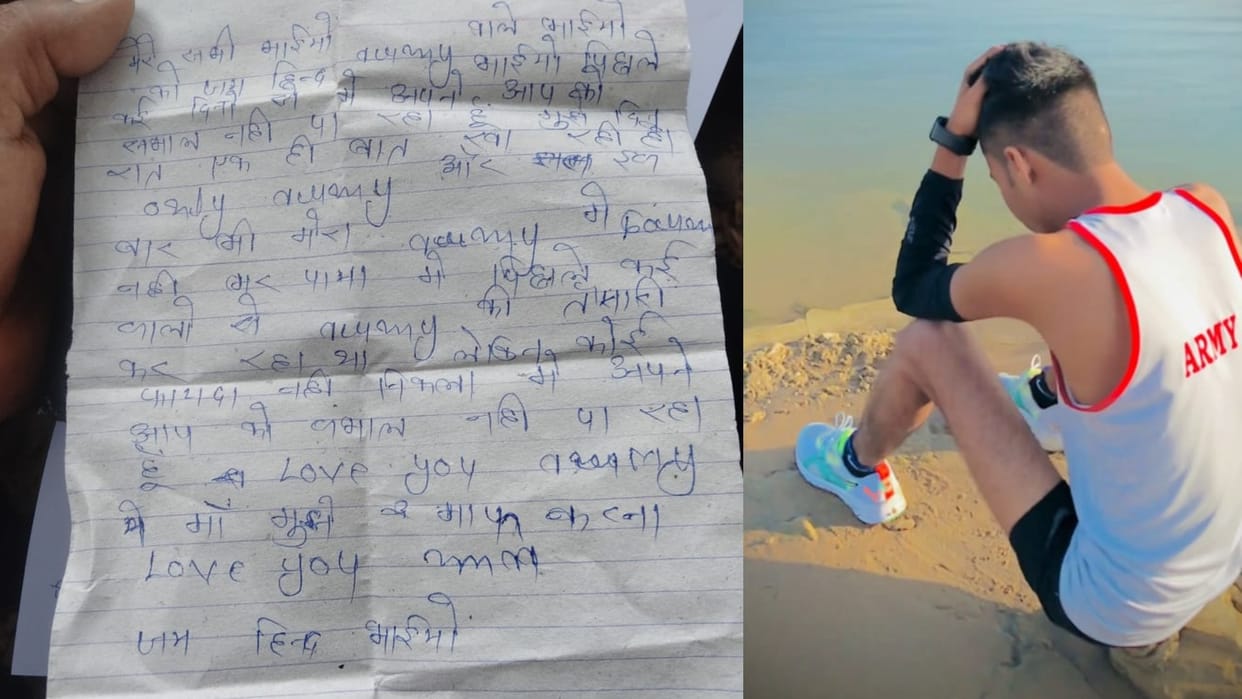 मेरे सभी भाईयो वाले भाईयो
को जय हिन्द army भाईयो पिछले
कई दिनो से मे अपने आप को
समाल नही पा रहा हूं मुझे दिन
रात एक ही बात खा रही है
only army और इस
बार भी मेरा army मे
नही भर पाया मे पिछले कई
सालो से army की तयारी
कर रहा था लेकिन कोई
फायदा नही निकला मे अपने
आप को समाल नही पा रहा
हू Love you army
माँ मुझे माफ करना
Love you
जय हिन्द भाईयो
ARMY